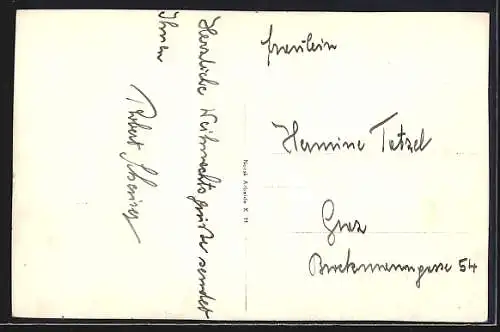 Herzliche Weihnachtsgrüße sendet
Ihnen
Robert
Norsk Arbeide K. H.
Fräulein
Hermine Tetzel
Graz
Brockmanngasse 54